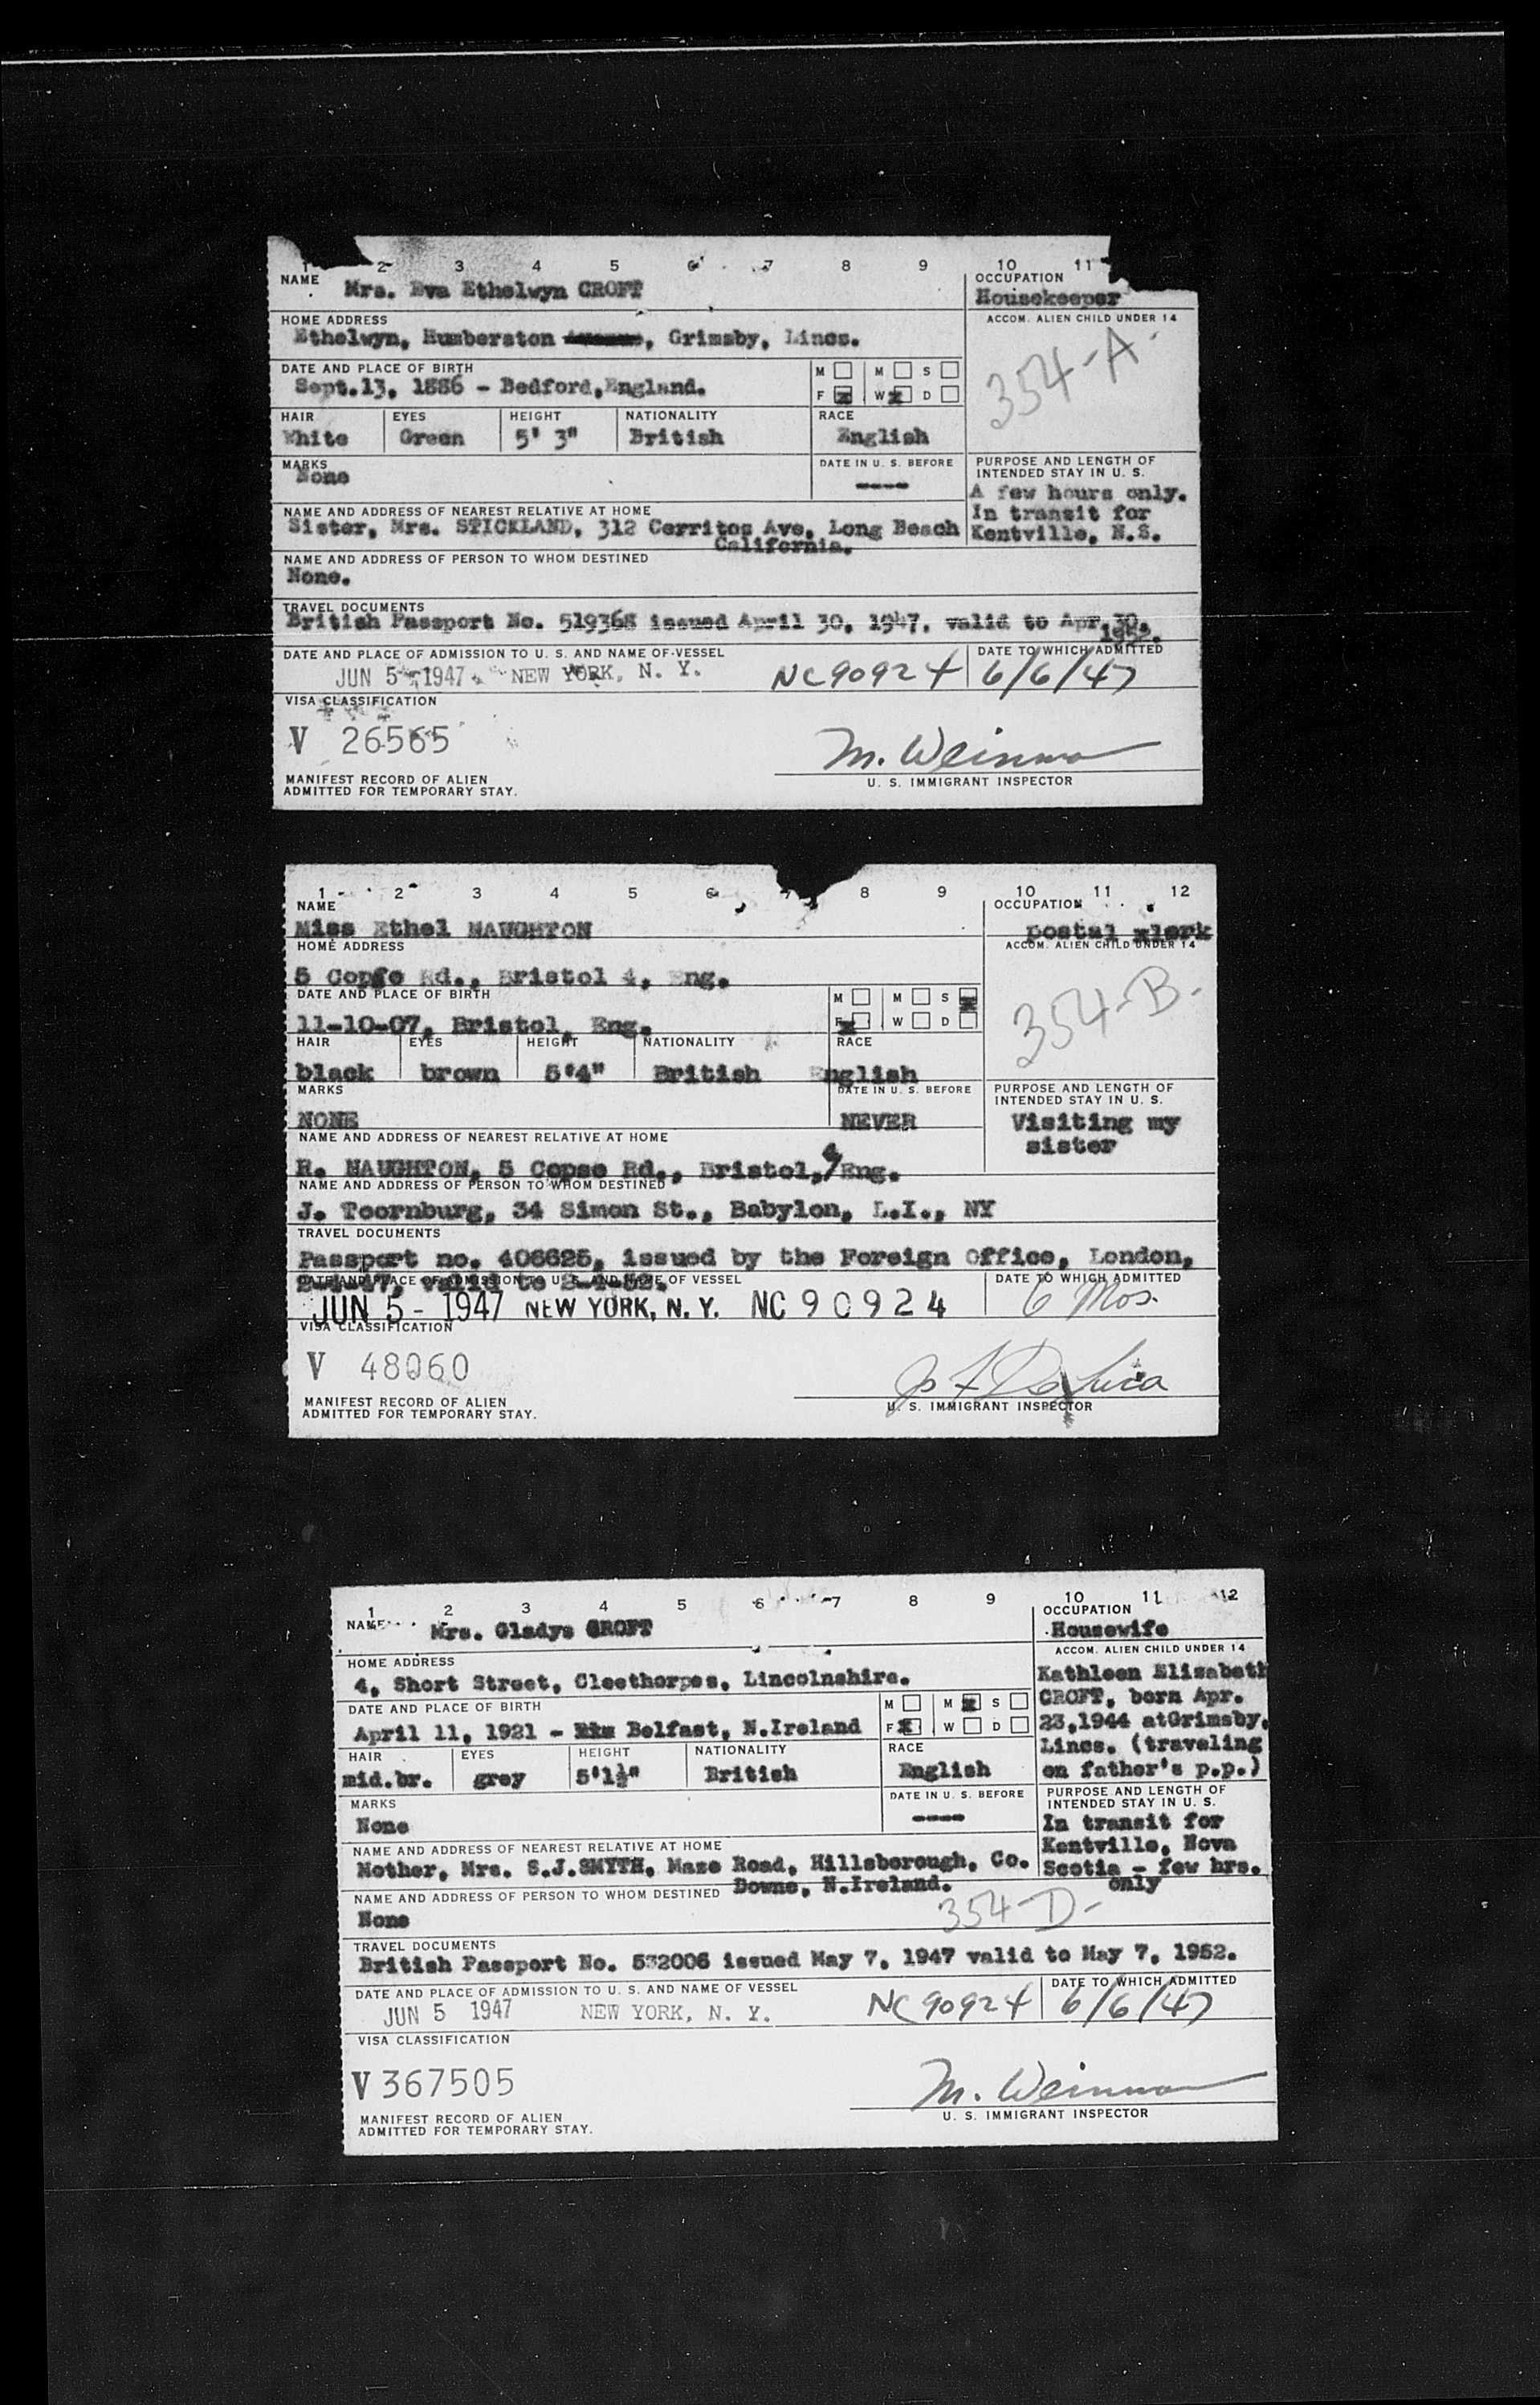 1 2 3 4 5 6 7 8 9 10 11
NAME Mrs. Eva Ethelwyn CROFT
OCCUPATION
Housekeeper
HOME ADDRESS
Ethelwyn, Humberston , Grimsby, Lincs.
ACCOM. ALIEN CHILD UNDER 14
354-A-
DATE AND PLACE OF BIRTH
Sept.13, 1886 - Bedford,England.
M M S
F x W x D
HAIR EYES HEIGHT NATIONALITY RACE
White Green 5' 3" British English
MARKS
None
DATE IN U. S. BEFORE
----
PURPOSE AND LENGTH OF
INTENDED STAY IN U. S.
A few hours only.
In transit for
Kentville, N.S.
NAME AND ADDRESS OF NEAREST RELATIVE AT HOME
Sister, Mrs. STICKLAND, 312 Cerritos Ave, Long Beach
California.
NAME AND ADDRESS OF PERSON TO WHOM DESTINED
None.
TRAVEL DOCUMENTS
British Passport No. 519368 issued April 30, 1947, valid to Apr.30,
1952.
DATE AND PLACE OF ADMISSION TO U. S. AND NAME OF VESSEL
DATE TO WHICH ADMITTED
JUN 5 - 1947 NEW YORK, N. Y. NC90924 6/6/47
VISA CLASSIFICATION
V 26565
M. Weinman
MANIFEST RECORD OF ALIEN
ADMITTED FOR TEMPORARY STAY.
U. S. IMMIGRANT INSPECTOR
1 2 3 4 5 6 7 8 9 10 11 12
NAME
Miss Ethel NAUGHTON
OCCUPATION
postal xlerk
HOME ADDRESS
5 Copfe Rd., Bristol 4, Eng.
ACCOM. ALIEN CHILD UNDER 14
354-B-
DATE AND PLACE OF BIRTH
11-10-07, Bristol, Eng.
M M S x
F x W D
HAIR EYES HEIGHT NATIONALITY RACE
black brown 5'4" British English
MARKS
NONE
DATE IN U. S. BEFORE
NEVER
PURPOSE AND LENGTH OF
INTENDED STAY IN U. S.
Visiting my
sister
NAME AND ADDRESS OF NEAREST RELATIVE AT HOME
R. NAUGHTON, 5 Copse Rd., Bristol,4/Eng.
NAME AND ADDRESS OF PERSON TO WHOM DESTINED
J. Toornburg, 34 Simon St., Babylon, L.I., NY
TRAVEL DOCUMENTS
Passport no. 406625, issued by the Foreign Office, London,
2-4-47, valid to 2-4-52.
DATE AND PLACE OF ADMISSION TO U. S. AND NAME OF VESSEL
DATE TO WHICH ADMITTED
JUN 5 - 1947 NEW YORK, N. Y. NC 90924 6 Mos.
VISA CLASSIFICATION
V 48060
J F DeLuca
MANIFEST RECORD OF ALIEN
ADMITTED FOR TEMPORARY STAY.
U. S. IMMIGRANT INSPECTOR
1 2 3 4 5 6 7 8 9 10 11 12
NAME Mrs. Gladys CROFT
OCCUPATION
Housewife
HOME ADDRESS
4, Short Street, Cleethorpes, Lincolnshire.
ACCOM. ALIEN CHILD UNDER 14
Kathleen Elisabeth
CROFT, born Apr.
23,1944 atGrimsby,
Lincs. (traveling
on father's p.p.)
DATE AND PLACE OF BIRTH
April 11, 1921 - Belfast, N.Ireland
M M x S
F x W D
HAIR EYES HEIGHT NATIONALITY RACE
mid.br. grey 5'1½" British English
MARKS
None
DATE IN U. S. BEFORE
----
PURPOSE AND LENGTH OF
INTENDED STAY IN U. S.
In transit for
Kentville, Nova
Scotia - few hrs.
only
NAME AND ADDRESS OF NEAREST RELATIVE AT HOME
Mother, Mrs. S.J.SMYTH, Maze Road, Hillsborough, Co.
Downe, N.Ireland.
NAME AND ADDRESS OF PERSON TO WHOM DESTINED
None
354-D-
TRAVEL DOCUMENTS
British Passport No. 532006 issued May 7, 1947 valid to May 7, 1952.
DATE AND PLACE OF ADMISSION TO U. S. AND NAME OF VESSEL
DATE TO WHICH ADMITTED
JUN 5 1947 NEW YORK, N. Y. NC90924 6/6/47
VISA CLASSIFICATION
V 367505
M. Weinman
MANIFEST RECORD OF ALIEN
ADMITTED FOR TEMPORARY STAY.
U. S. IMMIGRANT INSPECTOR